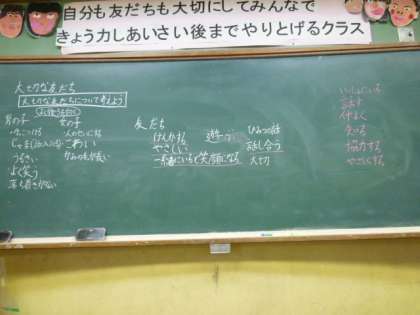 自分も友だちも大切にしてみんなで
きょう力しあいさい後までやりとげるクラス
大切な友だち
大切な友だちについて考えよう
男の子
女の子
うるさい
よく笑う
人のせいにする
こわい
友だち
けんかする
やさしい
一緒にいると笑顔になる
遊
ひみつの話
話し合う
大切
いっしょにいる
話す
仲よく
協力する
やさしくする